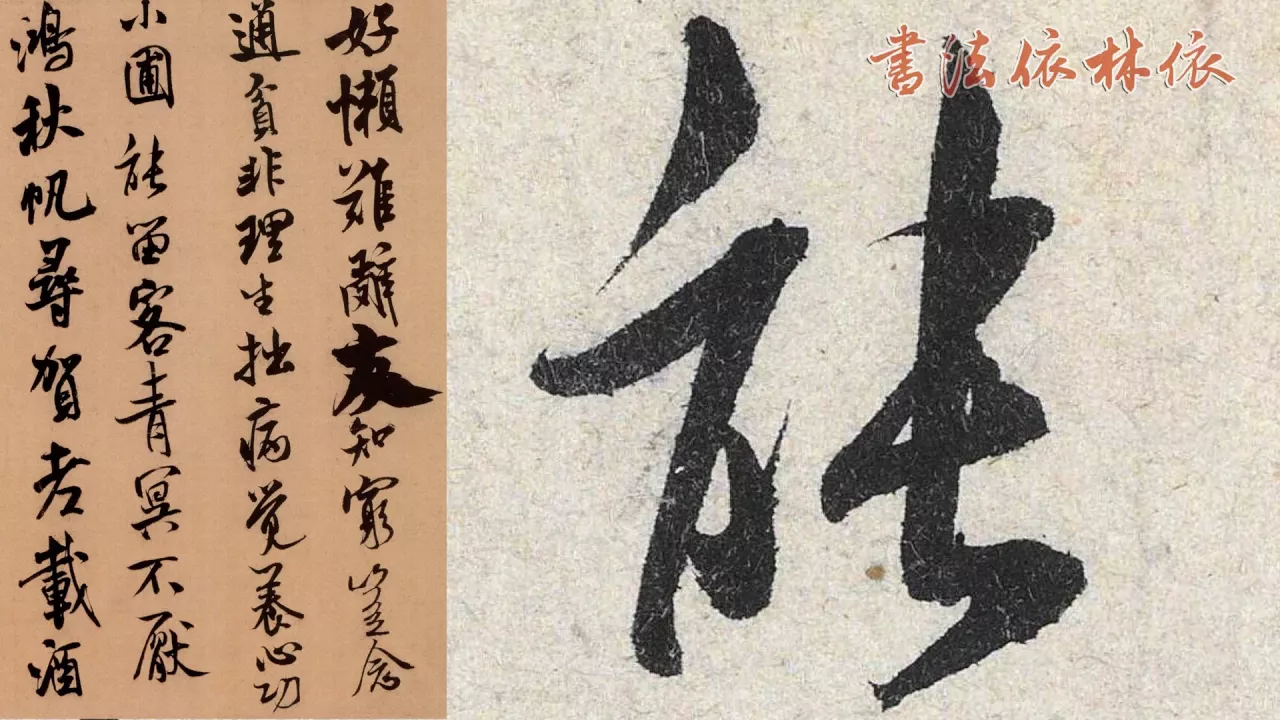 好懶難辭友知窮豈念
通貧非理生拙病覺養心功
小圃能留客青冥不厭
鴻秋帆尋賀老載酒
能
書法依林依